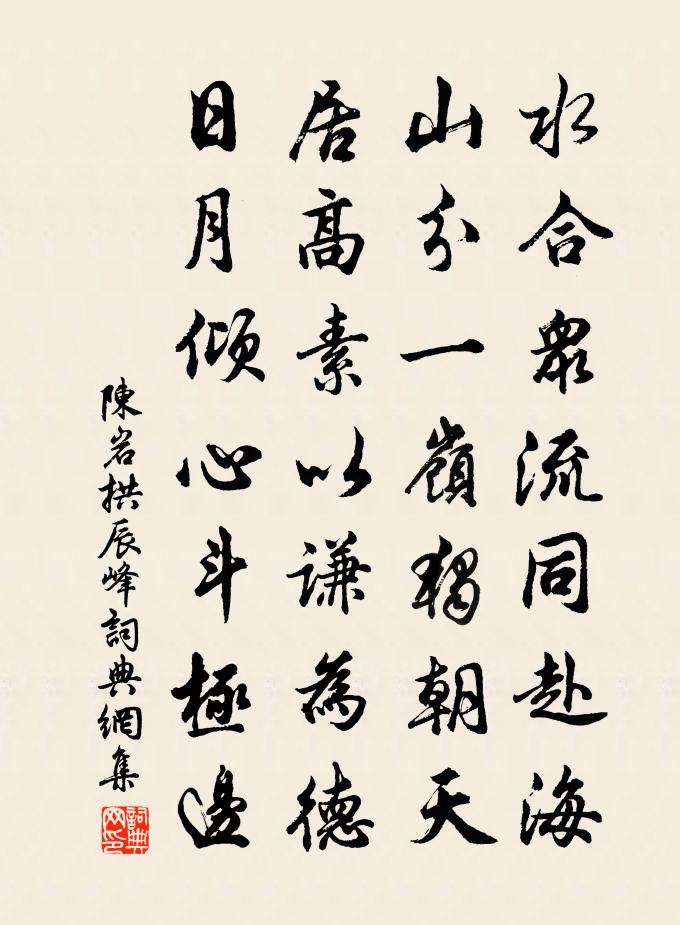 水合眾流同赴海
山分一嶺獨朝天
居高素以謙為德
日月傾心斗極邊
陳岩拱辰峰詞典網集
詞典網印